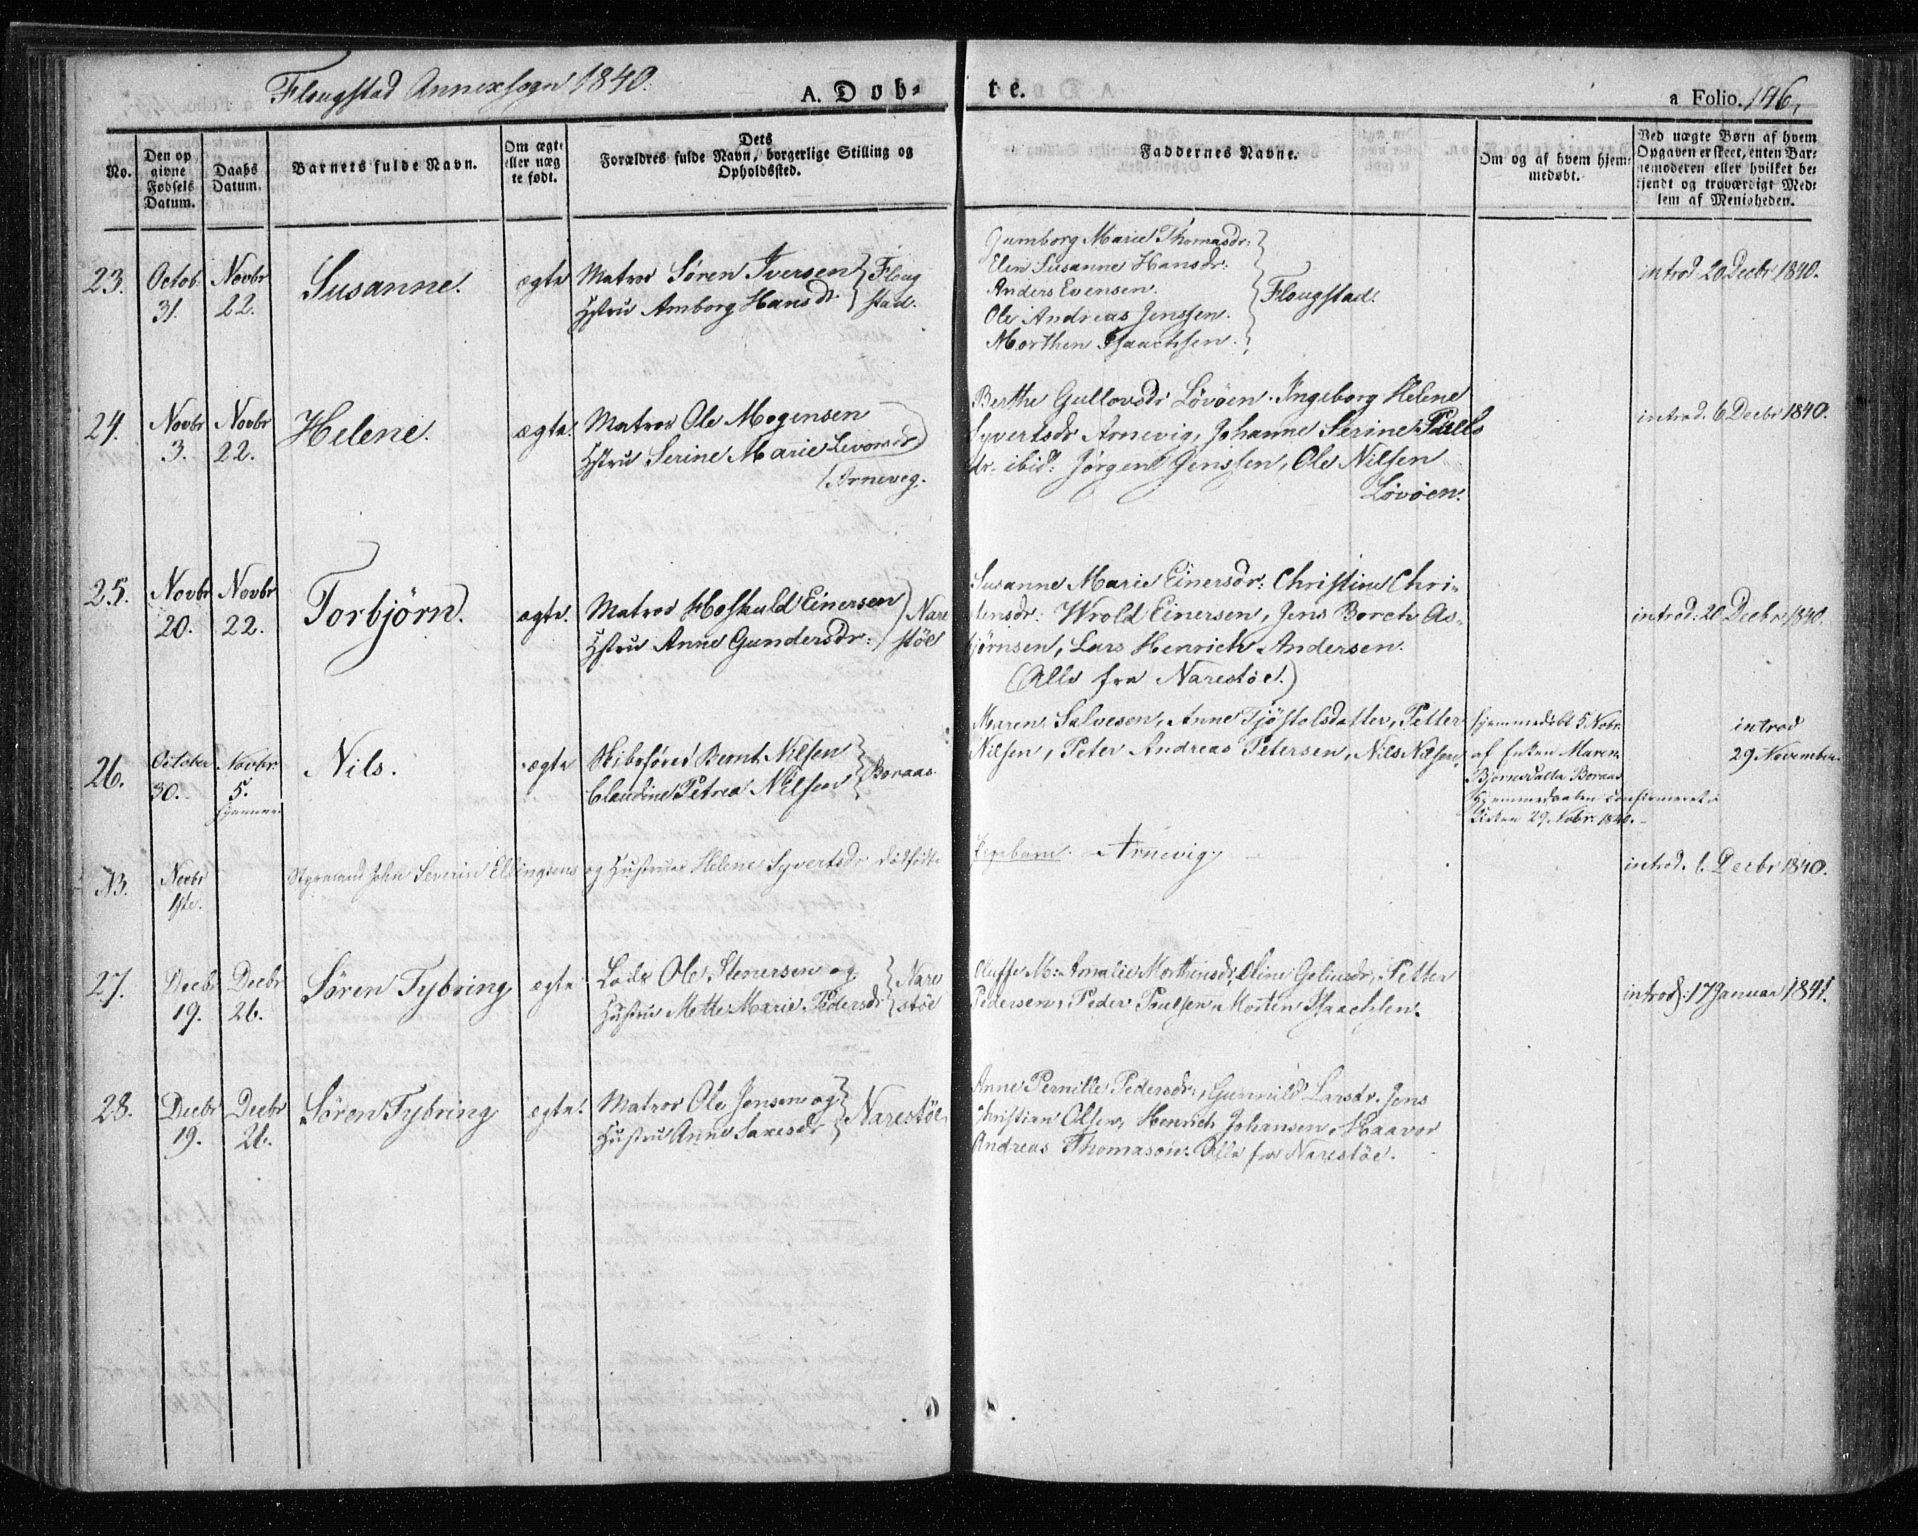 Flougstad Annexsogn 1840.
A. Døb-
te.
a Folio. 146,
No.
Den op
givne
Fødsels
Datum.
Daabs
Datum.
Barnets fulde Navn.
Om ægte
eller uæg
te født.
Dets
Forældres fulde Navn, borgerlige Stilling og
Opholdssted.
Faddernes Navne.
Om og af hvem hjem-
medøbt.
Ved uægte Børn af hvem
Opgaven er skeet, enten Bar-
nemoderen eller hvilket be-
kjendt og troværdigt Med-
lem af Menigheden.
23.
Octob.
31.
Novbr
22.
Susanne.
ægte
Matros Søren Iversen
Hstru Amborg Hansdr.
Floug
stad.
Gumborg Marie Thomasdr:
Elen Susanne Hansdr:
Anders Evensen.
Ole Andreas Jenssen.
Morthen Isaachsen.
Flougstad.
introd 20 Decbr 1840.
24.
Novbr
3.
Novbr
22.
Helene.
ægte.
Matros Ole Mogensen
Hstru Serine Marie
Arneveg.
Berthe Gullovsdr Løvøen. Ingeborg Helene
Syvertsdr Arnevig, Johanne Serine Pauls
dr. ibid: Jørgen Jenssen, Ole Nilsen
Løvøen.
introd. 6 Decbr 1840.
25.
Novbr
20.
Novbr
22.
Torbjørn.
ægte.
Matros Hoskuld Einersen
Hstru Anne Gundersdr:
Nare
støe
Susanne Marie Einersdr: Christine Chri-
stensdr: Wrold Einersen, Jens Borch As-
bjørnsen, Lars Henrich Andersen.
(Alle fra Narestøe.)
introd: 20 Decbr 1840.
26.
October
30.
Novbr
5.
hjemme
Nils.
ægte
Skibsfører Bernt Nilsen
Claudine Petrea Nilsen
Boraas.
Maren Salvesen, Anne Tjøstolsdatter, Petter
Nilsen, Peter Andreas Petersen, Nils Nilsen
hjemmedøbt 5 Nobr.
af Enken Maren
Bjørnsdatter Boraas
Hjemmedaaben confirmeret i
Kirken 29 Nobr: 1840.
introd
29 November
NB.
Novbr
1ste.
Styrmand John Severin Ellingsens og Hustrues Helene Syvertsdr dødfødte
Pigebarn. Arnevig
introd. 6. Decbr 1840.
27.
Decbr
19.
Decbr
26.
Søren Tybring
ægte
Lods Ole Stenersen og
Hustru Mette Marie Pedersdr
Nare
støe
Oluffe M: Amalie Morthinsdr, Oline Goliusdr, Petter
Pedersen, Peder Poulsen, Morten Isaachsen.
introd: 17 Januar 1841.
28.
Decbr
19.
Decbr
26.
Søren Tybring
ægte.
Matros Ole Jensen og
Hustru Anne Saxesdr
Narestøe
Anne Pernille Pedersdr:, Gunnild Larsdr. Jens
Christian Olsen, Henrich Johansen, Haavor
Andreas Thomasen. Alle fra Narestøe.